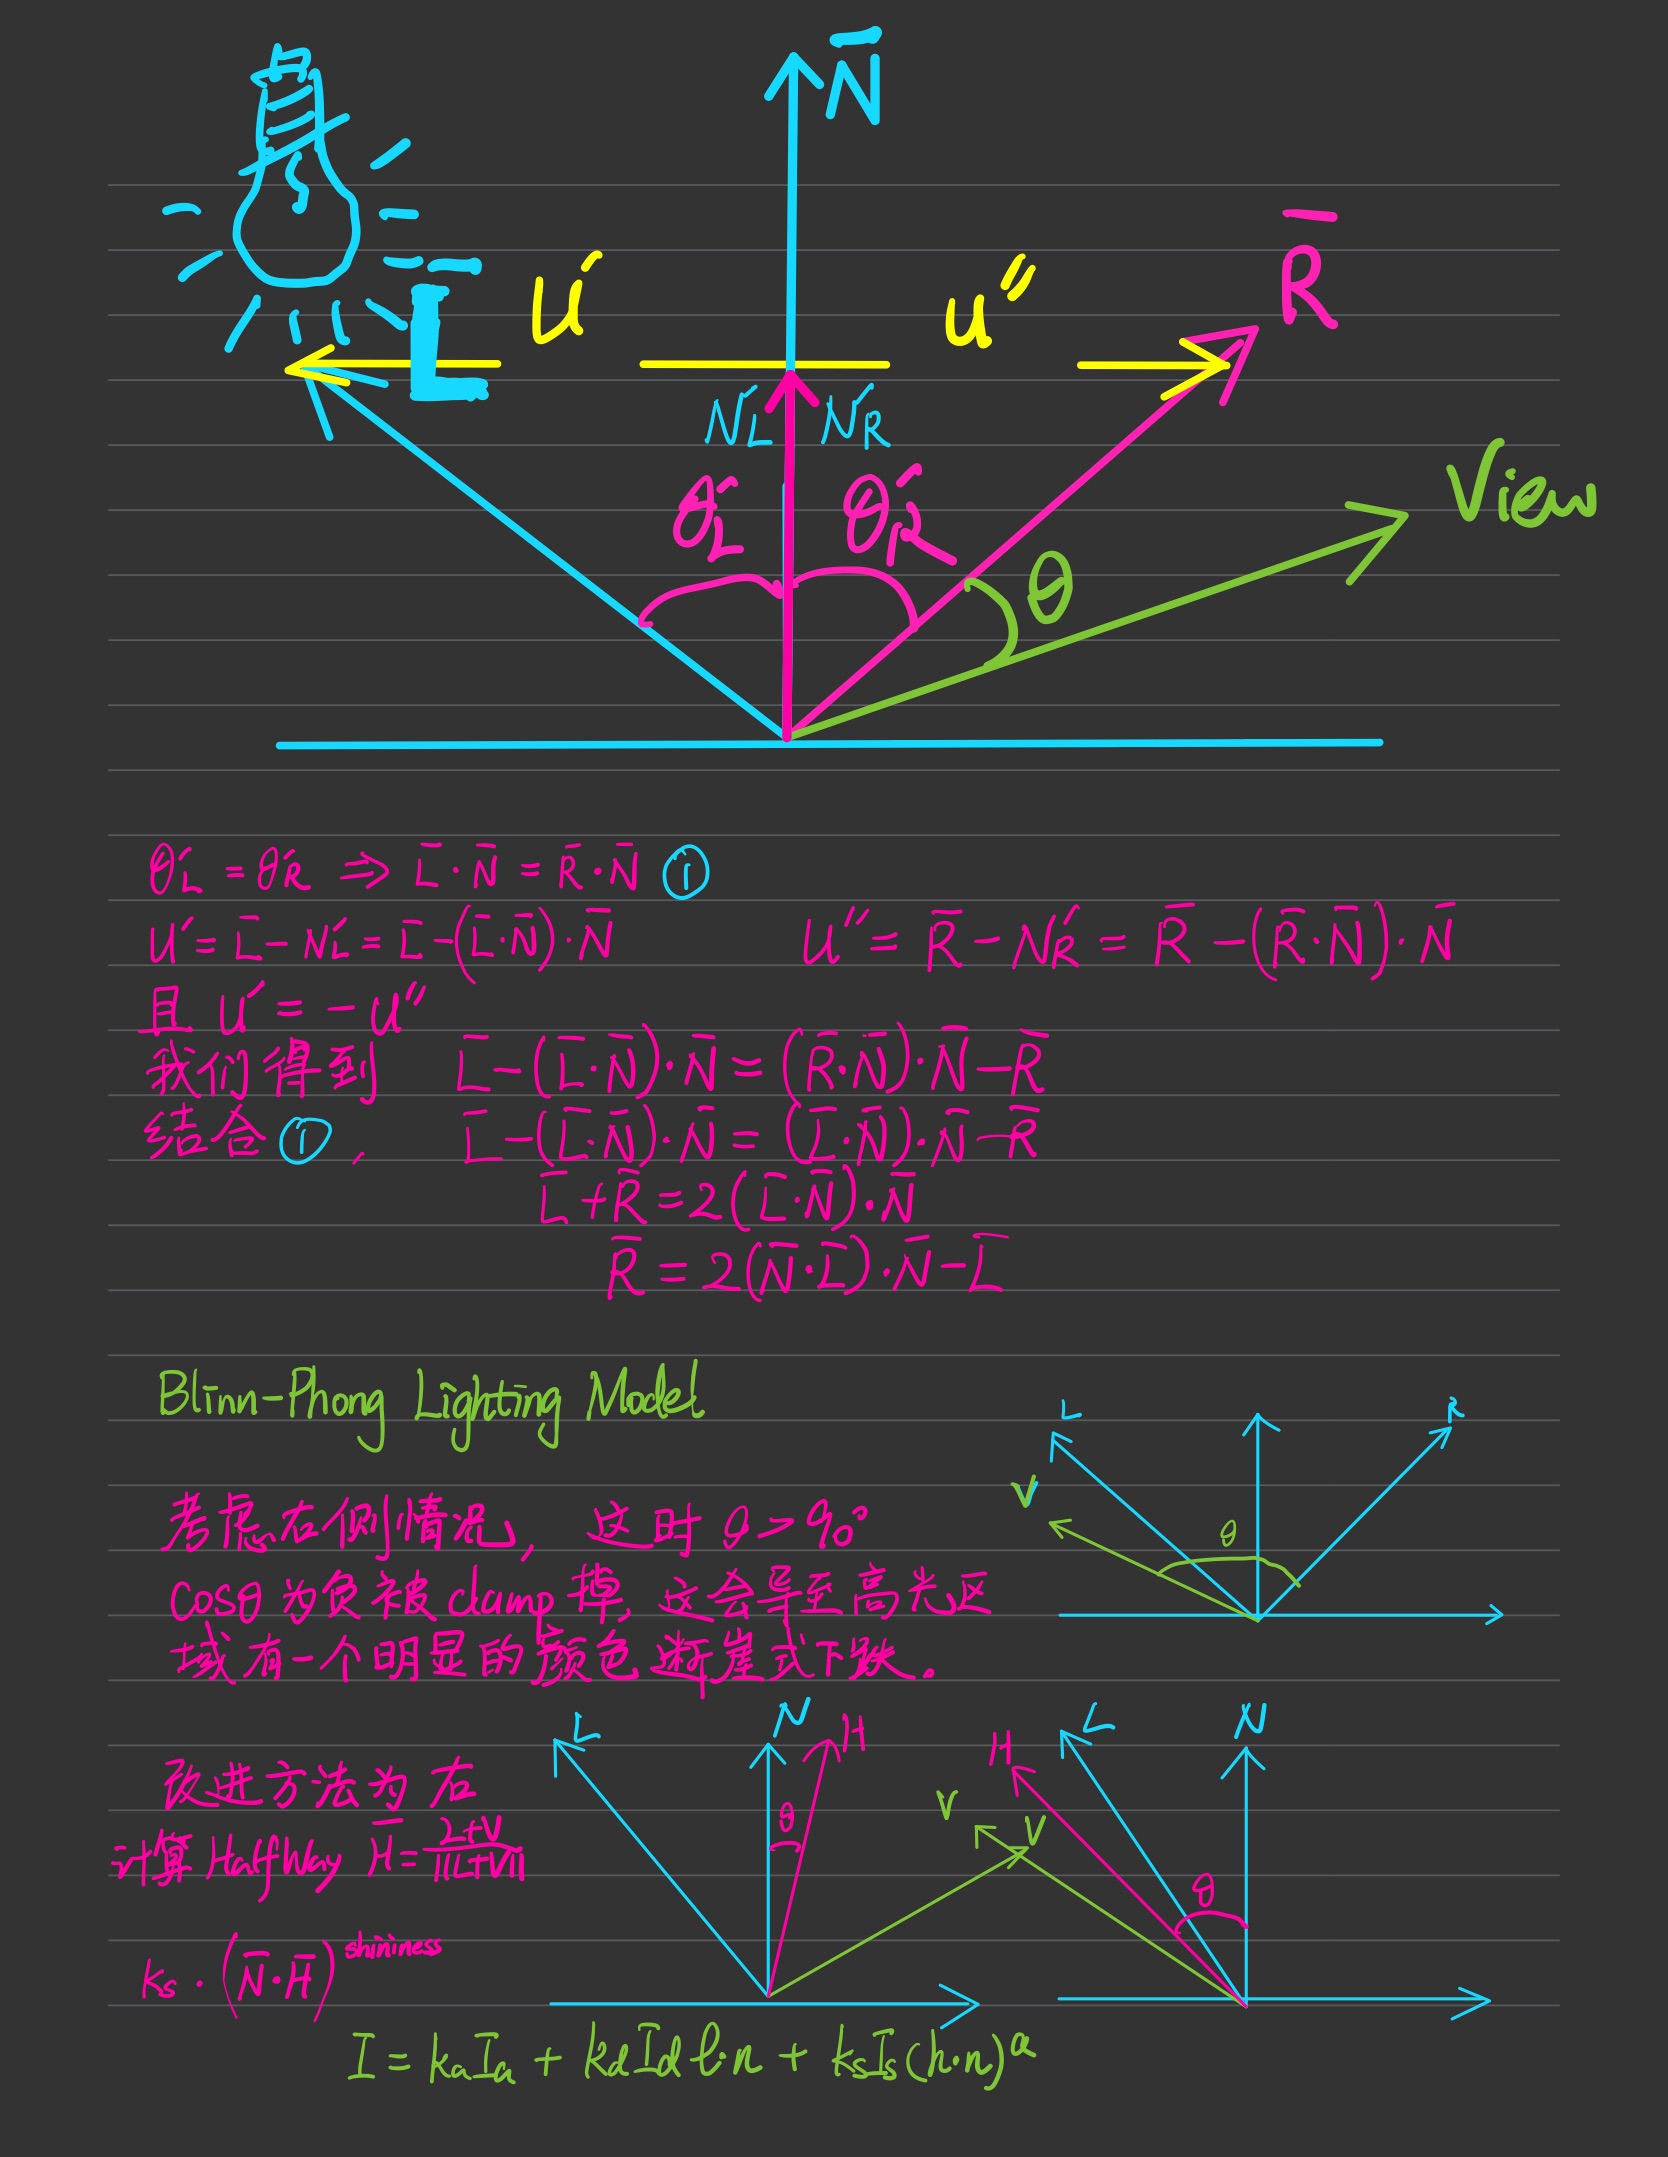 N̄
R̄
L̄
u′
u″
N_L′ N_R′
θ_L′ θ_R′
θ
View
θ_L′ = θ_R′ ⇒ L̄·N̄ = R̄·N̄ ①
u′ = L̄ − N_L′ = L̄ − (L̄·N̄)·N̄  u″ = R̄ − N_R′ = R̄ − (R̄·N̄)·N̄
且 u′ = −u″
我们得到 L̄ − (L̄·N̄)·N̄ = (R̄·N̄)·N̄ − R̄
结合①, L̄ − (L̄·N̄)·N̄ = (L̄·N̄)·N̄ − R̄
L̄ + R̄ = 2(L̄·N̄)·N̄
R̄ = 2(N̄·L̄)·N̄ − L̄
Blinn-Phong Lighting Model
L
R
V
θ
考虑右侧情况, 这时 θ > 90°
cosθ为负被clamp掉, 这会导至高光区
域有一个明显的颜色断崖式下跌.
L N H
θ
V
H L N
V
θ
改进方法为右
计算 HalfWay H̄ = (L+V)/||L+V||
ks·(N̄·H̄)^shininess
I = kaIa + kdId l·n + ksIs(h·n)^α